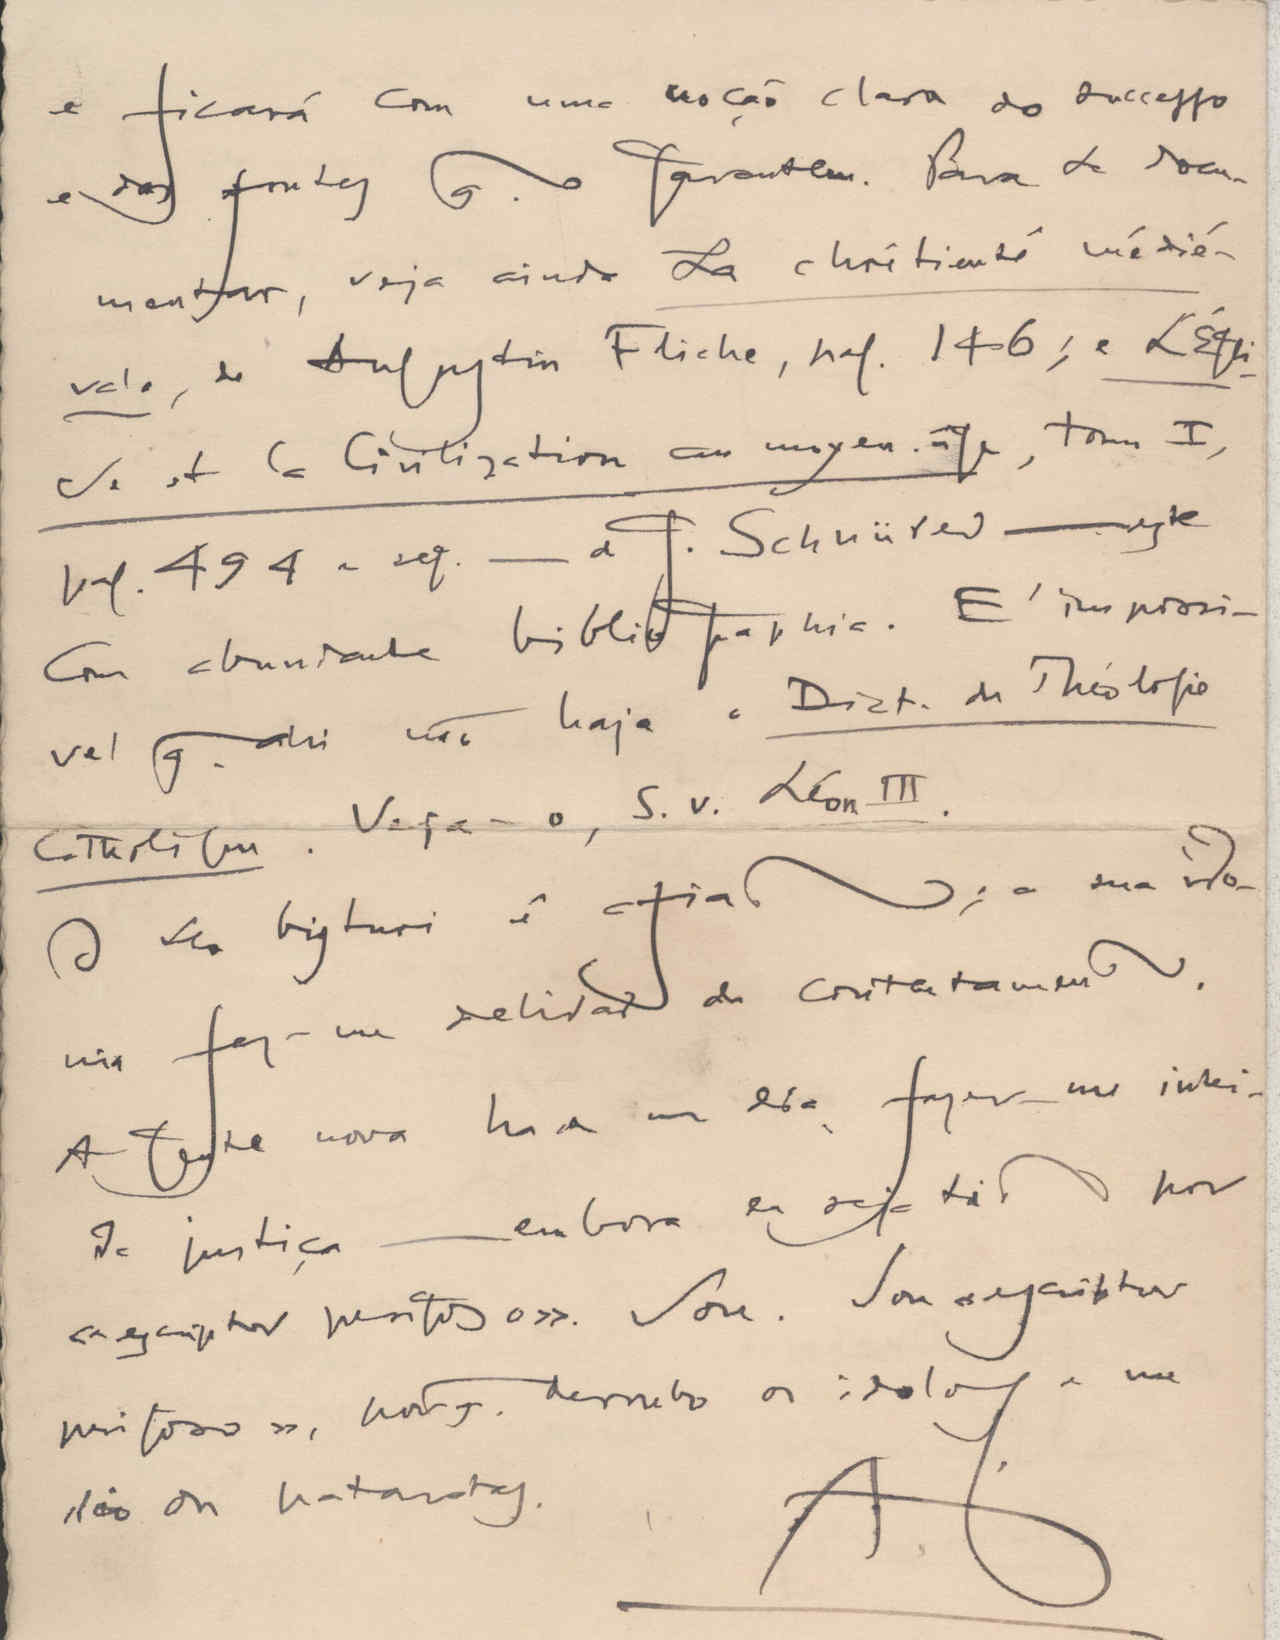 e ficará com uma noção clara do successo
e das fontes q. o garantem. Para se docu-
mentar, veja ainda La chrétienté médié-
vale, de Augustin Fliche, pag. 146; e L'Égli-
se et la Civilization au moyen-âge, tomo I,
pag. 494 e seg. — de G. Schnürer — este
com abundante bibliographia. E' impossi-
vel q. ahi não haja o Dict. de Théologie
Catholique. Veja-o, s. v. Léon III.
O seu bisturi é afiado; a sua iro-
nia faz-me
de contentamento.
A gente nova ha de um dia, fazer-me intei-
ra justiça — embora eu seja tido por
«escriptor perigoso». Sou. Sou «escriptor
perigoso», porq. derrubo os idolos e me
rio das pataratas.
A.